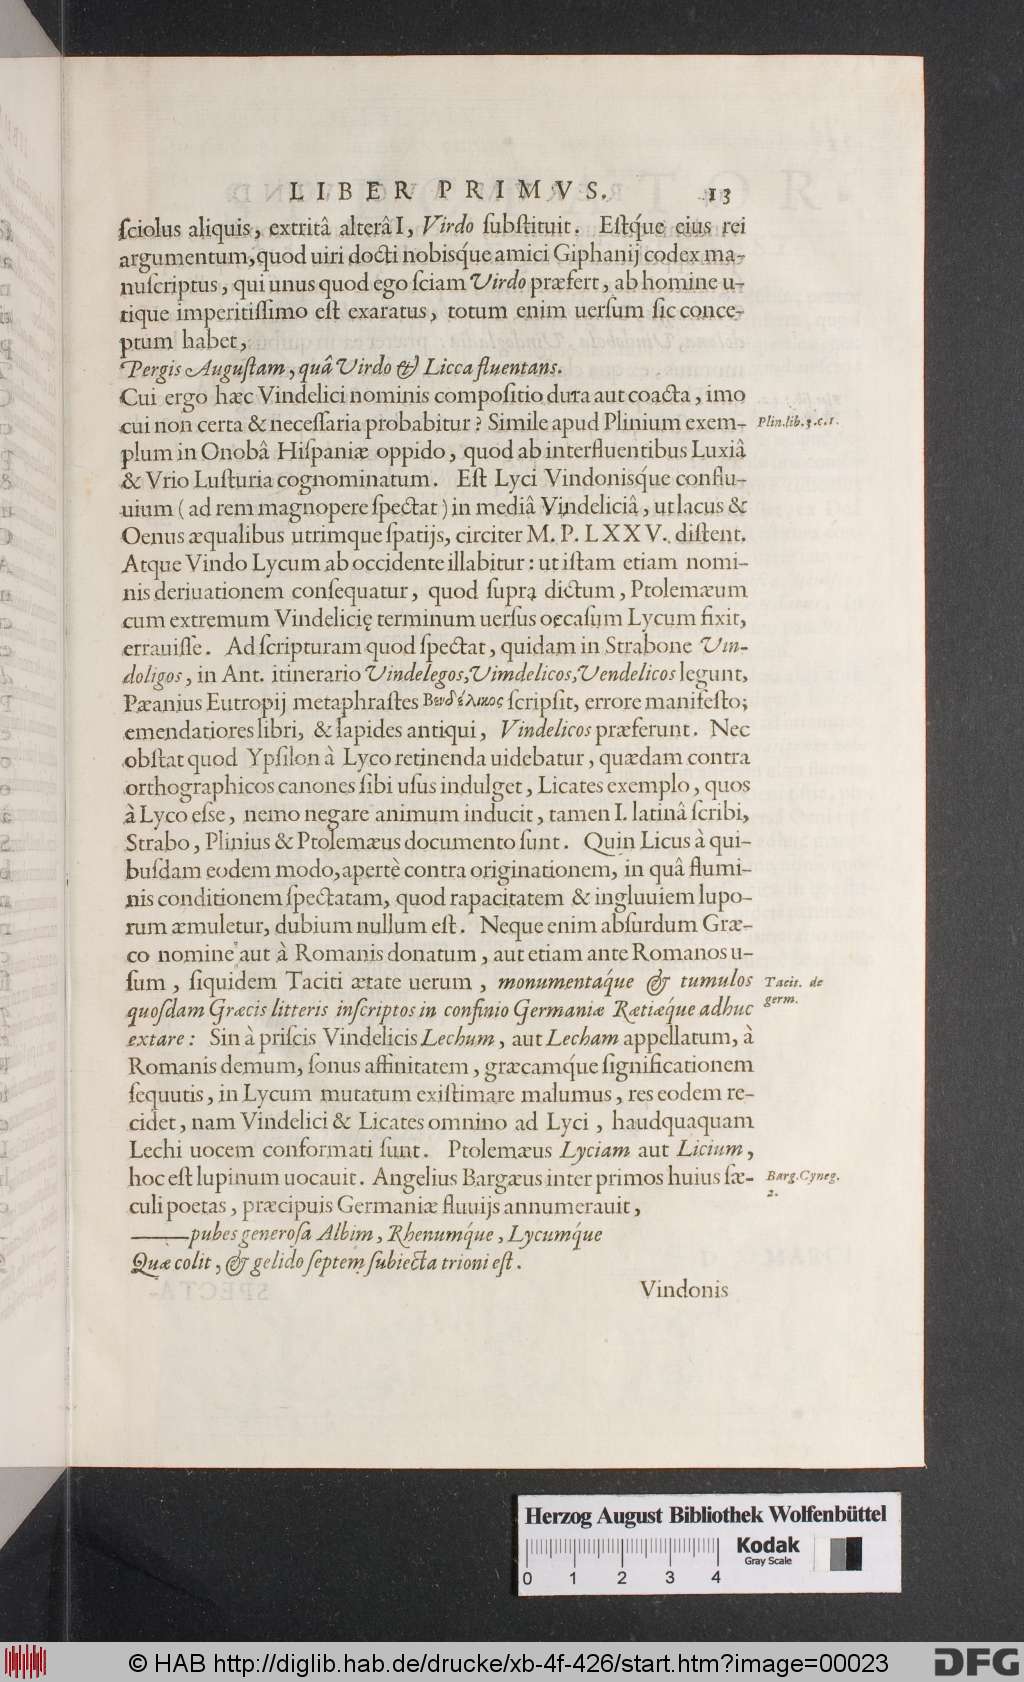 LIBER PRIMVS. 13
ſciolus aliquis, extritâ alterâ I, Virdo ſubſtituit. Eſtq́ue eius rei
argumentum, quod uiri docti nobisq́ue amici Giphanij codex ma-
nuſcriptus, qui unus quod ego ſciam Virdo præfert, ab homine u-
tique imperitiſſimo eſt exaratus, totum enim uerſum ſic conce-
ptum habet,
Pergis Auguſtam, quâ Virdo & Licca fluentans.
Cui ergo hæc Vindelici nominis compoſitio dura aut coacta, imo
cui non certa & neceſſaria probabitur? Simile apud Plinium exem- Plin. lib. 3. c. 1.
plum in Onobâ Hiſpaniæ oppido, quod ab interfluentibus Luxiâ
& Vrio Luſturia cognominatum. Eſt Lyci Vindonisq́ue conflu-
uium (ad rem magnopere ſpectat) in mediâ Vindeliciâ, ut lacus &
Oenus æqualibus utrimque ſpatijs, circiter M. P. LXXV. diſtent.
Atque Vindo Lycum ab occidente illabitur: ut iſtam etiam nomi-
nis deriuationem conſequatur, quod ſupra dictum, Ptolemæum
cum extremum Vindelicię terminum uerſus occaſum Lycum fixit,
errauiſſe. Ad ſcripturam quod ſpectat, quidam in Strabone Vin-
doligos, in Ant. itinerario Vindelegos, Vimdelicos, Vendelicos legunt,
Pæanius Eutropij metaphraſtes Βενδέλικος ſcripſit, errore manifeſto;
emendatiores libri, & lapides antiqui, Vindelicos præferunt. Nec
obſtat quod Ypſilon à Lyco retinenda uidebatur, quædam contra
orthographicos canones ſibi uſus indulget, Licates exemplo, quos
à Lyco eſse, nemo negare animum inducit, tamen I. latinâ ſcribi,
Strabo, Plinius & Ptolemæus documento ſunt. Quin Licus à qui-
buſdam eodem modo, apertè contra originationem, in quâ flumi-
nis conditionem ſpectatam, quod rapacitatem & ingluuiem lupo-
rum æmuletur, dubium nullum eſt. Neque enim abſurdum Græ-
co nomine aut à Romanis donatum, aut etiam ante Romanos u-
ſum, ſiquidem Taciti ætate uerum, monumentaq́ue & tumulos Tacit. de
quoſdam Græcis litteris inſcriptos in confinio Germaniæ Rætiæq́ue adhuc germ.
extare: Sin à priſcis Vindelicis Lechum, aut Lecham appellatum, à
Romanis demum, ſonus affinitatem, græcamq́ue ſignificationem
ſequutis, in Lycum mutatum exiſtimare malumus, res eodem re-
cidet, nam Vindelici & Licates omnino ad Lyci, haudquaquam
Lechi uocem conformati ſunt. Ptolemæus Lyciam aut Licium,
hoc eſt lupinum uocauit. Angelius Bargæus inter primos huius ſæ- Barg. Cyneg.
culi poetas, præcipuis Germaniæ fluuijs annumerauit, 2.
——pubes generoſa Albim, Rhenumq́ue, Lycumq́ue
Quæ colit, & gelido ſeptem ſubiecta trioni eſt.
Vindonis
Herzog August Bibliothek Wolfenbüttel
0 1 2 3 4
Kodak
Gray Scale
© HAB http://diglib.hab.de/drucke/xb-4f-426/start.htm?image=00023
DFG